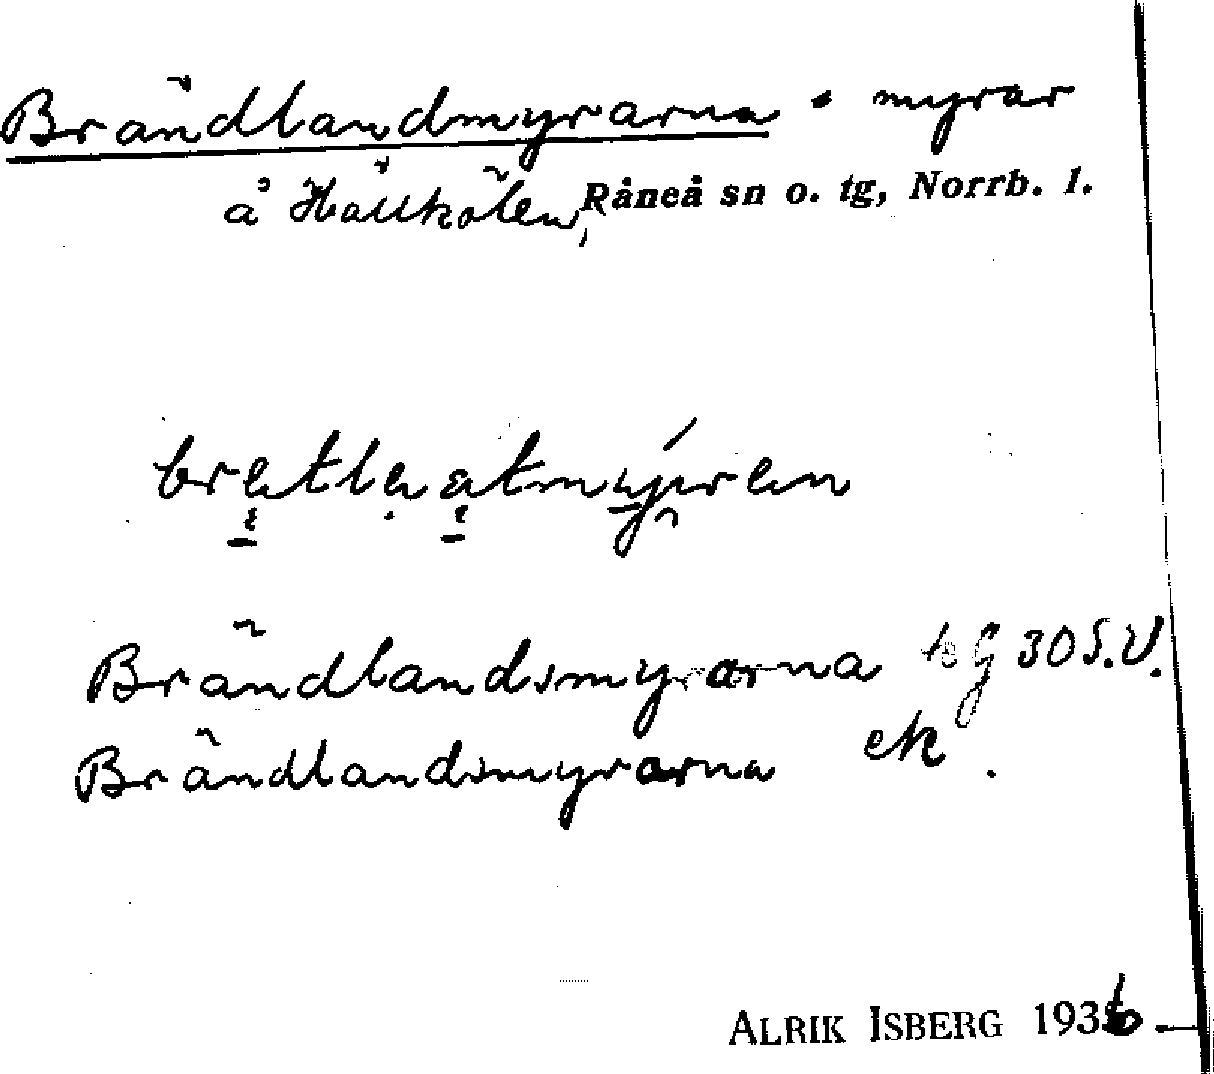 Brändlandmyrarna • myrar
å Hällkölen, Råneå sn o. tg, Norrb. l.
Brändlandsmyrarna tg 30 S.V.
Brändlandsmyrarna ek.
ALRIK ISBERG 1936